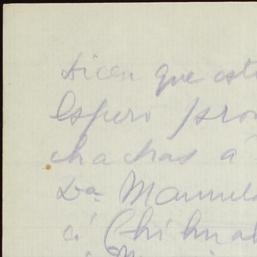 dicen que est
Espero pro
chachas á
Da. Manuel
á Chihua